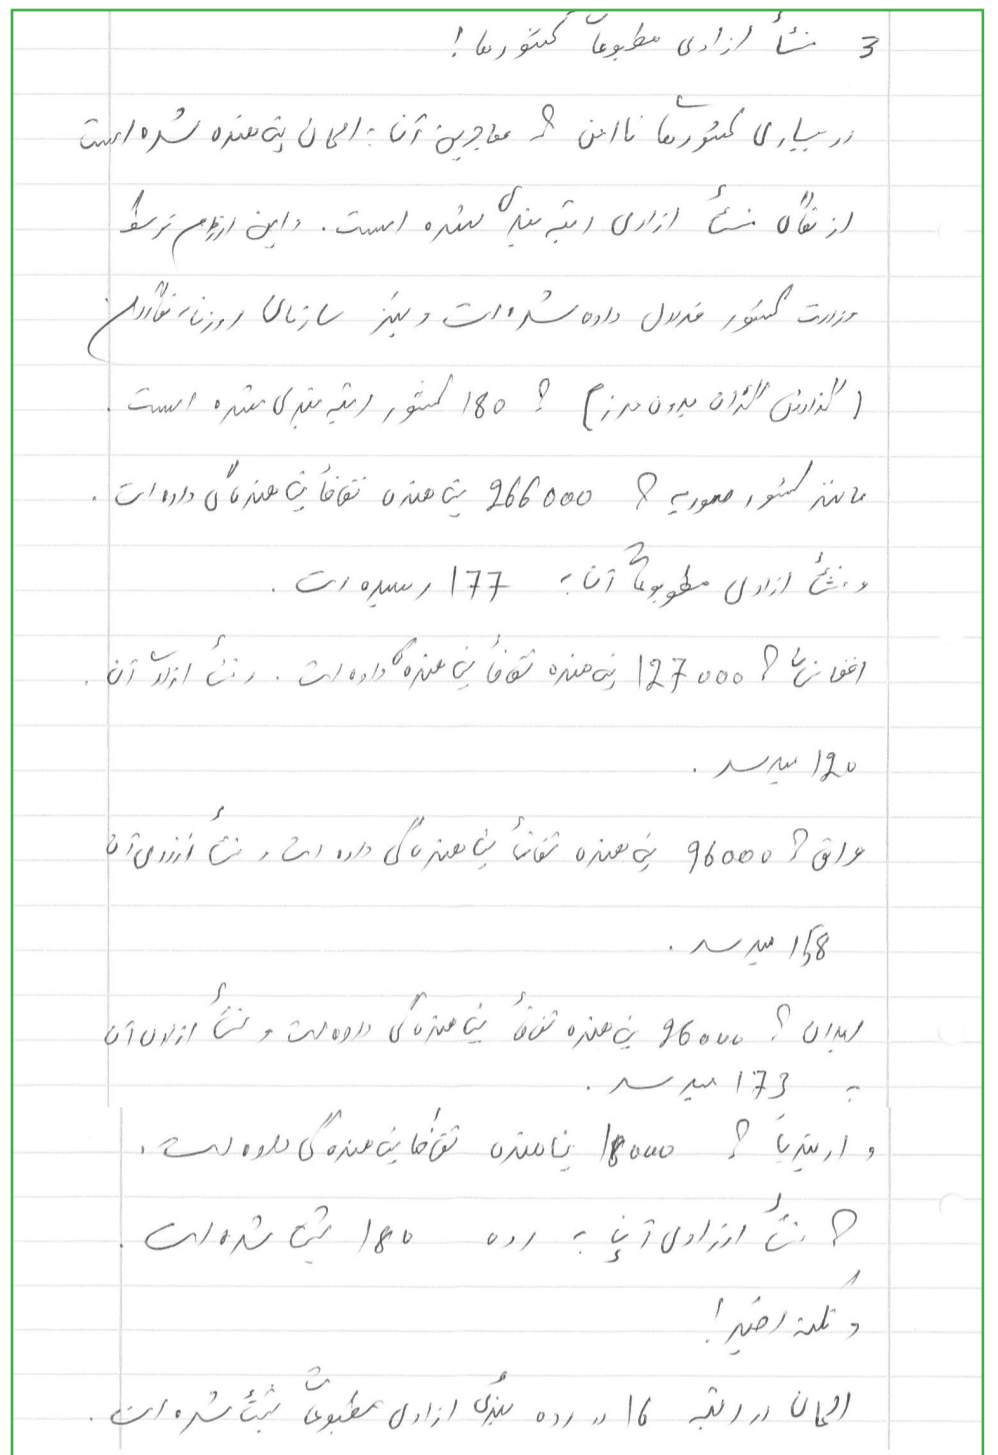 3 منشأ ازادی مطبوعات کشورها !
در بسیاری کشورها ناامن ؟ مهاجرین آن به المان پناهنده شده است
از نگاه منشأ ازادی رتبه بندی شده است. و این ارقام توسط
وزارت کشور فدرال داده شده است و نیز سازمان روزنامه نگاران
(گزارش گران بدون مرز) ؟ 180 کشور رتبه بندی شده است .
مانند کشور سوریه ؟ 266000 پناهنده تقاضأ پناهندگی داده است .
و منشأ ازادی مطبوعات آن به 177 رسیده است .
افغانستان ؟ 127000 پناهنده تقاضأ پناهندگی داده است . و منشأ ازادی آن .
120 میرسد .
عراق ؟ 96000 پناهنده تقاضأ پناهندگی داده است و منشأ ازادی آن
158 میرسد .
ایران ؟ 26000 پناهنده تقاضأ پناهندگی داده است و منشأ ازادی آن
به 173 میرسد .
و اریتریا ؟ 18000 پناهنده تقاضا پناهندگی داده است .
؟ منشأ ازادی آن به رده 180 ثبت شده است .
و نکته اخیر !
المان در رتبه 16 در رده بندی ازادی مطبوعات ثبت شده است .